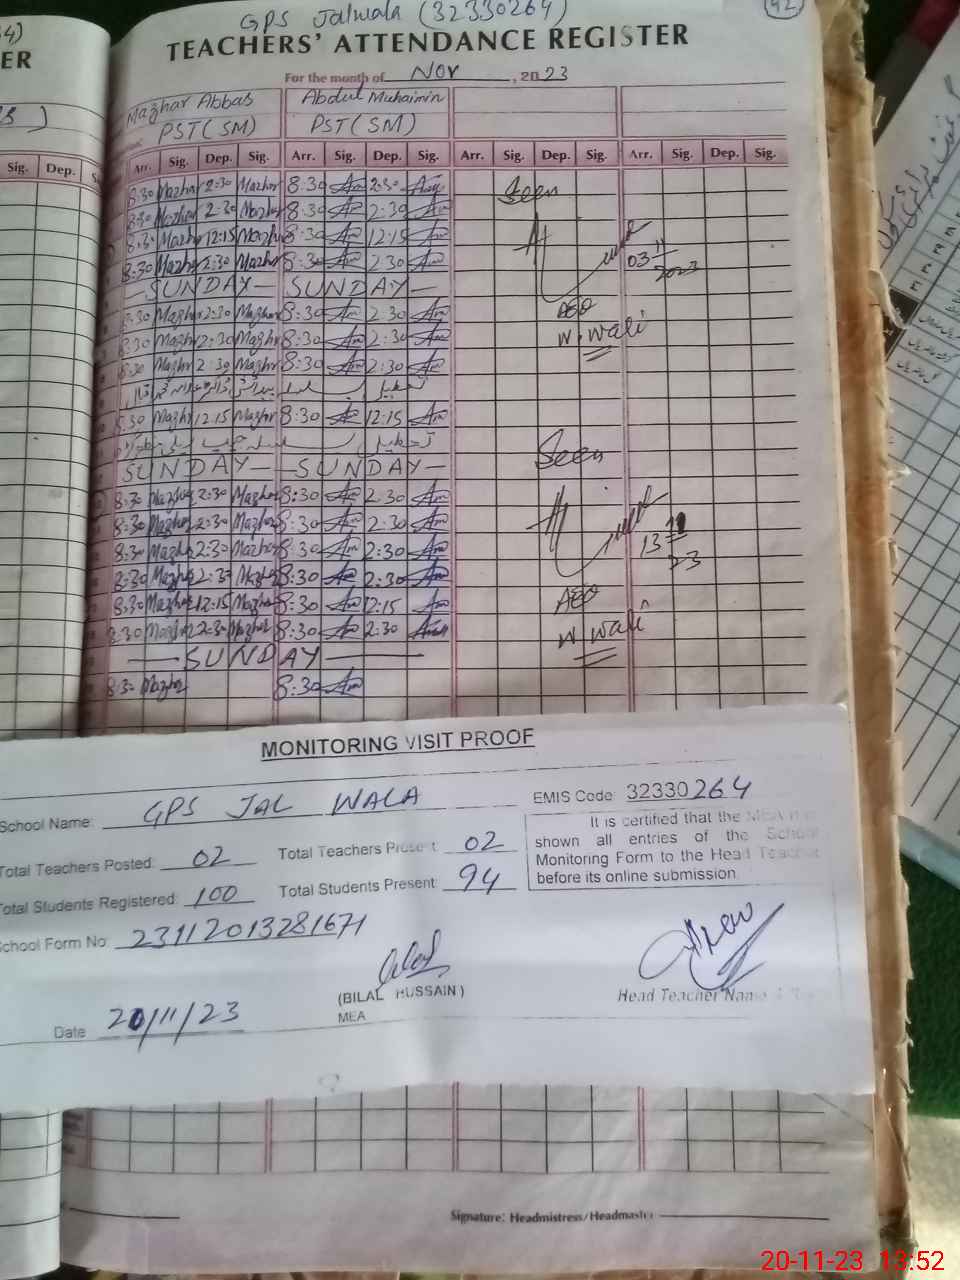 GPS Jalwala (32330264)
42
TEACHERS' ATTENDANCE REGISTER
For the month of Nov, 2023
Mazhar Abbas Abdul Muhaimin
PST(SM) PST(SM)
Sig. Dep. Arr. Sig. Dep. Sig. Arr. Sig. Dep. Sig. Arr. Sig. Dep. Sig. Arr. Sig. Dep. Sig.
8:30 Mazhar 2:30 Mazhar 8:30 Am 2:30 Am
8:30 Mazhar 2:30 Mazhar 8:30 Am 2:30 Am
8:30 Mazhar 12:15 Mazhar 8:30 Am 12:15 Am
8:30 Mazhar 2:30 Mazhar 8:30 Am 2:30 Am
— SUNDAY — SUNDAY —
8:30 Mazhar 2:30 Mazhar 8:30 Am 2:30 Am
8:30 Mazhar 2:30 Mazhar 8:30 Am 2:30 Am
8:30 Mazhar 2:30 Mazhar 8:30 Am 2:30 Am
تعطیل
8:30 Mazhr 12:15 Mazhar 8:30 Am 12:15 Am
تعطیل
SUNDAY — SUNDAY —
8:30 Mazhar 2:30 Mazhar 8:30 Am 2:30 Am
8:30 Mazhar 2:30 Mazhar 8:30 Am 2:30 Am
8:30 Mazhar 2:30 Mazhar 8:30 Am 2:30 Am
8:30 Mazhar 2:30 Mazhar 8:30 Am 2:30 Am
8:30 Mazhar 12:15 Mazhar 8:30 Am 12:15 Am
8:30 Mazhar 2:30 Mazhar 8:30 Am 2:30 Am
— SUNDAY —
8:30 Mazhar 8:30 Am
Seen
03 11
2023
AEO
W. wali
Seen
13 11
23
AEO
W wali
MONITORING VISIT PROOF
School Name: GPS JAL WALA
EMIS Code: 32330264
Total Teachers Posted: 02 Total Teachers Present: 02
Total Students Registered: 100 Total Students Present: 94
It is certified that the MEA
shown all entries of the School
Monitoring Form to the Head Teacher
before its online submission.
School Form No: 23112013281671
(BILAL HUSSAIN)
MEA
Head Teacher Name
Date 20/11/23
Signature: Headmistress/Headmaster
20-11-23 13:52